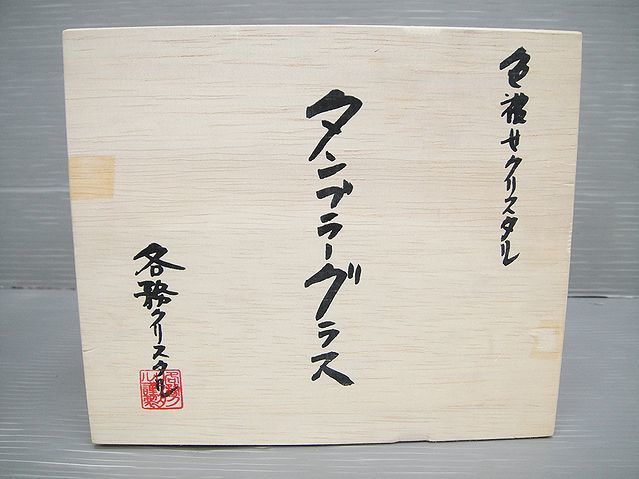 色被せクリスタル
タンブラーグラス
各務クリスタル